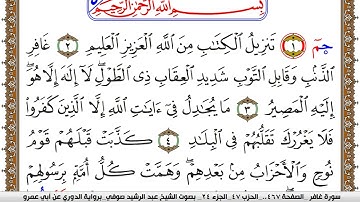 بِسْمِ اللَّهِ الرَّحْمَٰنِ الرَّحِيمِ
حمٓ ١ تَنزِيلُ الْكِتَابِ مِنَ اللَّهِ الْعَزِيزِ الْعَلِيمِ ٢ غَافِرِ
الذَّنۢبِ وَقَابِلِ التَّوْبِ شَدِيدِ الْعِقَابِ ذِى الطَّوْلِ لَا إِلَٰهَ إِلَّا هُوَ
إِلَيْهِ الْمَصِيرُ ٣ مَا يُجَادِلُ فِىٓ ءَايَاتِ اللَّهِ إِلَّا الَّذِينَ كَفَرُوا
فَلَا يَغْرُرْكَ تَقَلُّبُهُمْ فِى الْبِلَادِ ٤ كَذَّبَتْ قَبْلَهُمْ قَوْمُ
نُوحٍ وَالْأَحْزَابُ مِنۢ بَعْدِهِمْ وَهَمَّتْ كُلُّ أُمَّةٍ بِرَسُولِهِمْ
سورة غافر _الصفحة ٤٦٧_ الحزب ٤٧_ الجزء ٢٤_ بصوت الشيخ عبد الرشيد صوفي_ برواية الدوري عن أبي عمرو